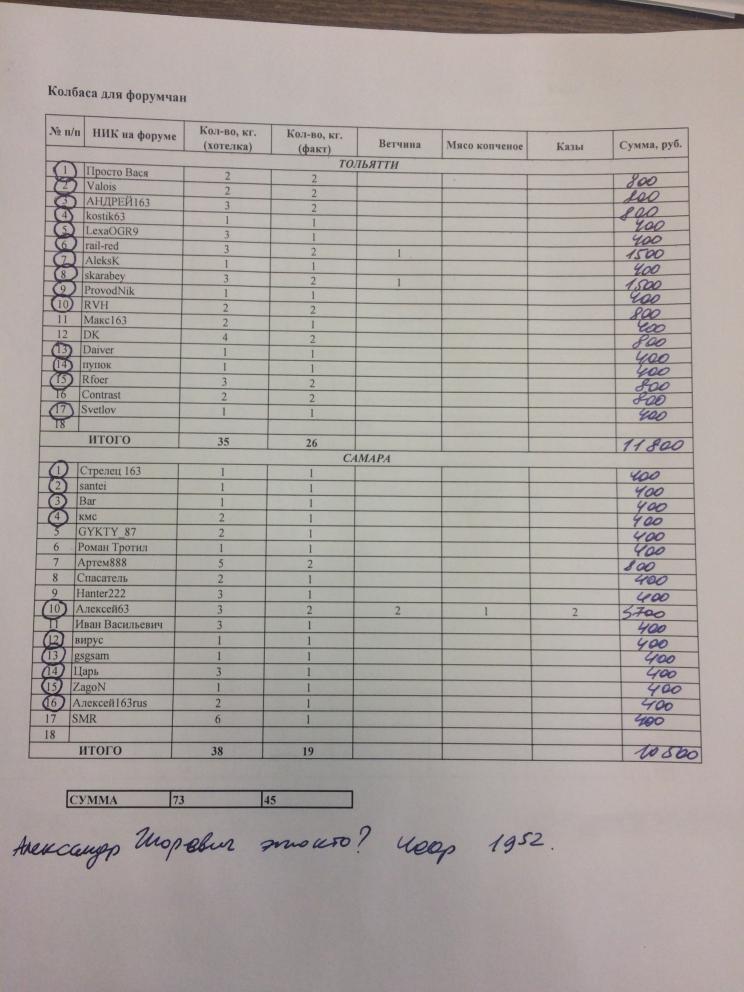 Колбаса для форумчан
№ п/п НИК на форуме Кол-во, кг. (хотелка) Кол-во, кг. (факт) Ветчина Мясо копченое Казы Сумма, руб.
ТОЛЬЯТТИ
1 Просто Вася 2 2 800
2 Valois 2 2 800
3 АНДРЕЙ163 3 2 800
4 kostik63 1 1 400
5 LexaOGR9 3 1 400
6 rail-red 3 2 1 1500
7 AleksK 1 1 400
8 skarabey 3 2 1 1500
9 ProvodNik 1 1 400
10 RVH 2 2 800
11 Макс163 2 1 400
12 DK 4 2 800
13 Daiver 1 1 400
14 пупок 1 1 400
15 Rfoer 3 2 800
16 Contrast 2 2 800
17 Svetlov 1 1 400
18
ИТОГО 35 26 11800
САМАРА
1 Стрелец 163 1 1 400
2 santei 1 1 400
3 Bar 1 1 400
4 кмс 2 1 400
5 GYKTY_87 2 1 400
6 Роман Тротил 1 1 400
7 Артем888 5 2 800
8 Спасатель 2 1 400
9 Hanter222 3 1 400
10 Алексей63 3 2 2 1 2 3700
11 Иван Васильевич 3 1 400
12 вирус 1 1 400
13 gsgsam 1 1 400
14 Царь 3 1 400
15 ZagoN 1 1 400
16 Алексей163rus 2 1 400
17 SMR 6 1 400
18
ИТОГО 38 19 10500
СУММА 73 45
Александр это кто? 1952.